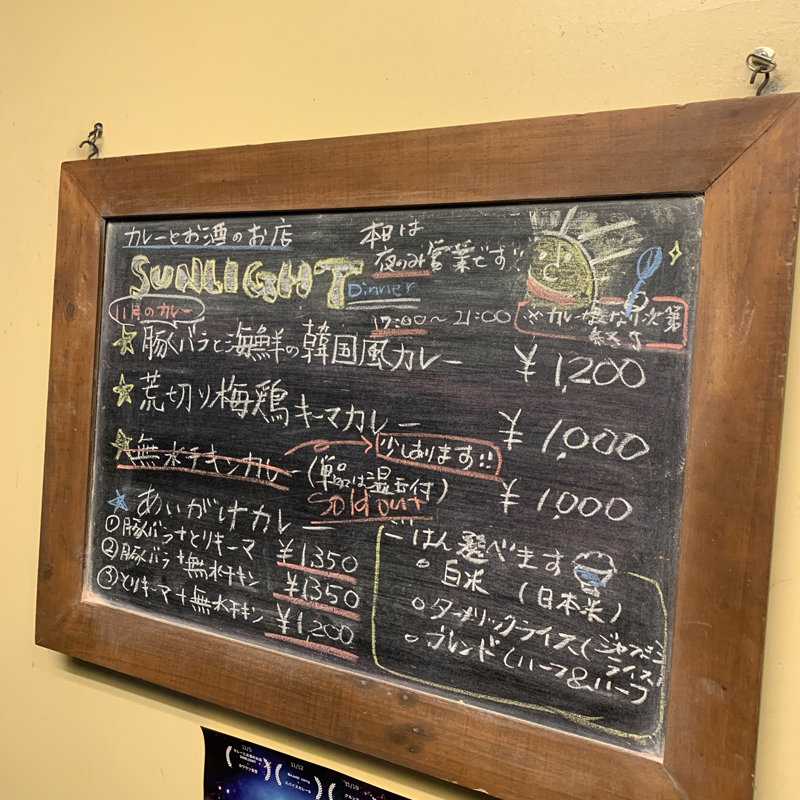 カレーとお酒のお店
本日は
夜のみ営業です!!
SUNLIGHT
Dinner
11月のカレー
17:00〜21:00
※カレー無くなり次第
終了
☆豚バラと海鮮の韓国風カレー ¥1,200
☆荒切り梅鶏キーマカレー ¥1,000
☆無水チキンカレー → 少しあります!!
(単品は温玉付) ¥1,000
Sold out
☆あいがけカレー
①豚バラ+とりキーマ ¥1,350
②豚バラ+無水チキン ¥1,350
③とりキーマ+無水チキン ¥1,200
ごはん選べます
○白米 (日本米)
○ターメリックライス(ジャスミン
ライス)
○ブレンド(ハーフ&ハーフ
11/5
11/12